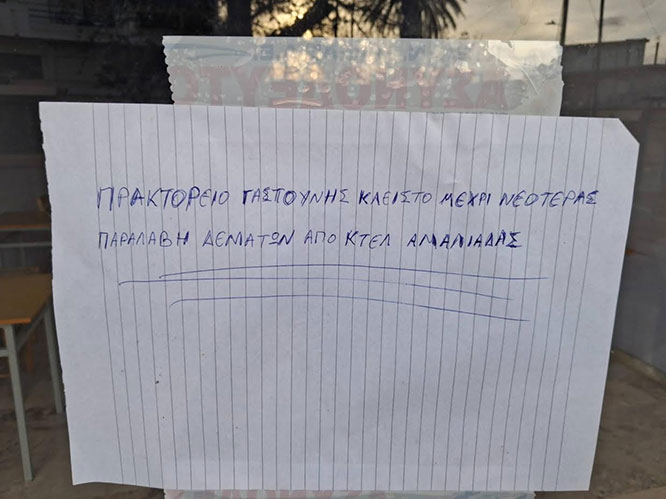 ΠΡΑΚΤΟΡΕΙΟ ΓΑΣΤΟΥΝΗΣ ΚΛΕΙΣΤΟ ΜΕΧΡΙ ΝΕΟΤΕΡΑΣ
ΠΑΡΑΛΑΒΗ ΔΕΜΑΤΩΝ ΑΠΟ ΚΤΕΛ ΑΜΑΛΙΑΔΑΣ